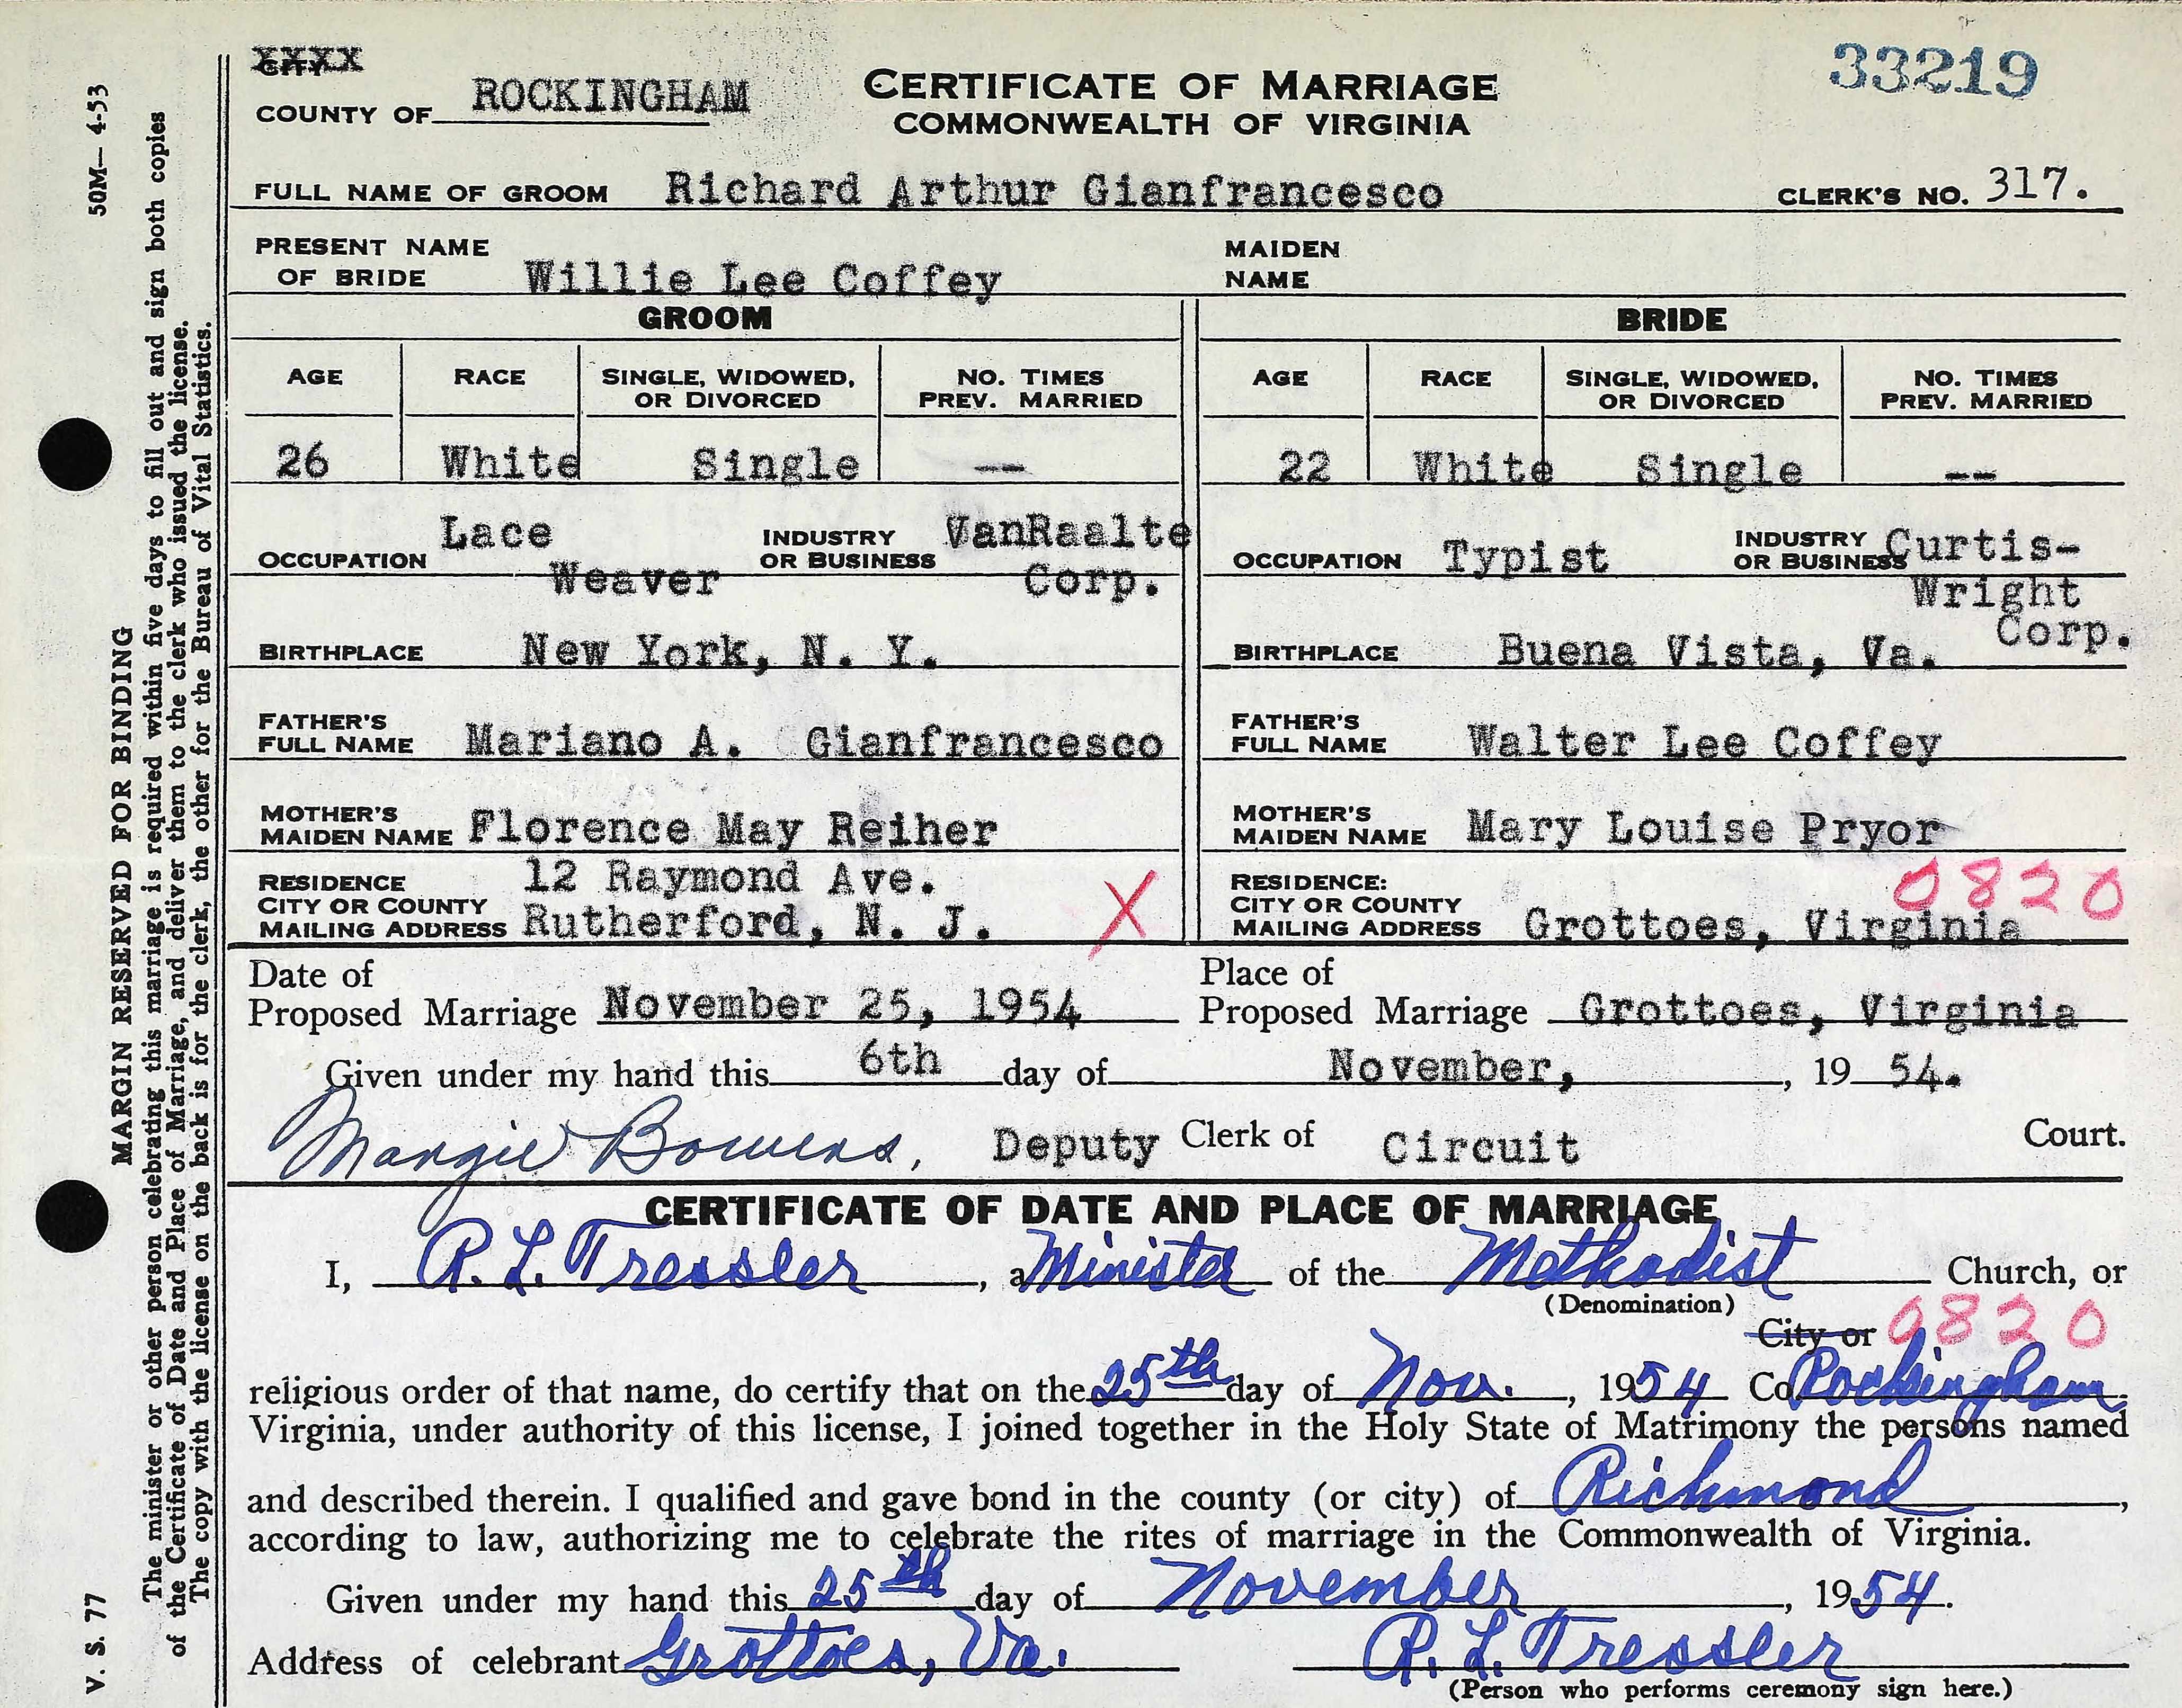 XXXX
CITY
COUNTY OF ROCKINGHAM
CERTIFICATE OF MARRIAGE
COMMONWEALTH OF VIRGINIA
33219
FULL NAME OF GROOM Richard Arthur Gianfrancesco CLERK'S NO. 317.
PRESENT NAME OF BRIDE Willie Lee Coffey MAIDEN NAME
GROOM BRIDE
AGE RACE SINGLE, WIDOWED, OR DIVORCED NO. TIMES PREV. MARRIED AGE RACE SINGLE, WIDOWED, OR DIVORCED NO. TIMES PREV. MARRIED
26 White Single -- 22 White Single --
OCCUPATION Lace Weaver INDUSTRY OR BUSINESS VanRaalte Corp. OCCUPATION Typist INDUSTRY OR BUSINESS Curtis-Wright Corp.
BIRTHPLACE New York, N. Y. BIRTHPLACE Buena Vista, Va.
FATHER'S FULL NAME Mariano A. Gianfrancesco FATHER'S FULL NAME Walter Lee Coffey
MOTHER'S MAIDEN NAME Florence May Reiher MOTHER'S MAIDEN NAME Mary Louise Pryor
RESIDENCE CITY OR COUNTY MAILING ADDRESS 12 Raymond Ave. Rutherford, N. J. X RESIDENCE: CITY OR COUNTY MAILING ADDRESS Grottoes, Virginia 0820
Date of Proposed Marriage November 25, 1954 Place of Proposed Marriage Grottoes, Virginia
Given under my hand this 6th day of November, , 19 54.
Margie Bowers, Deputy Clerk of Circuit Court.
CERTIFICATE OF DATE AND PLACE OF MARRIAGE
I, R. L. Tressler, a Minister of the Methodist Church, or
(Denomination)
City or 0820
religious order of that name, do certify that on the 25th day of Nov. , 1954 Co. Rockingham
Virginia, under authority of this license, I joined together in the Holy State of Matrimony the persons named
and described therein. I qualified and gave bond in the county (or city) of Richmond,
according to law, authorizing me to celebrate the rites of marriage in the Commonwealth of Virginia.
Given under my hand this 25th day of November , 1954.
Address of celebrant Grottoes, Va. R. L. Tressler
(Person who performs ceremony sign here.)
V. S. 77
50M— 4-53
MARGIN RESERVED FOR BINDING
The minister or other person celebrating this marriage is required within five days to fill out and sign both copies
of the Certificate of Date and Place of Marriage, and deliver them to the clerk who issued the license.
The copy with the license on the back is for the clerk, the other for the Bureau of Vital Statistics.